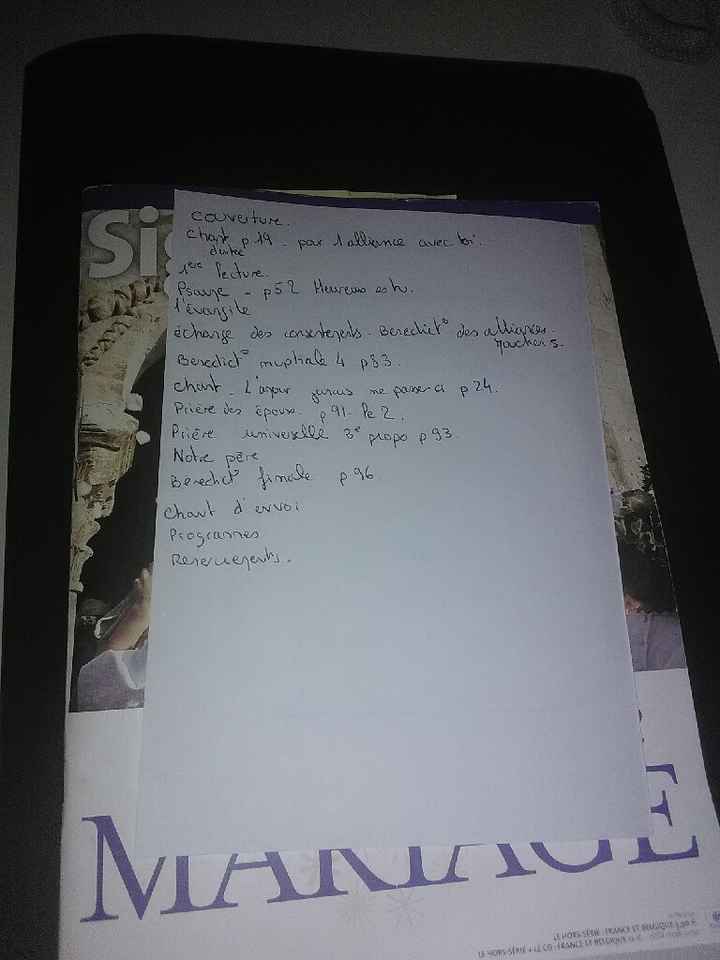 Si
couverture.
Chant p 19 - par l'alliance avec toi.
d'entrée
1ère lecture.
Psaume - p 52 Heureux es tu.
l'évangile
échange des consentements - Benedict° des alliances.
Benedict° nuptiale 4 p 83.
chant - L'amour jamais ne passera p 24.
Prière des époux - p 91 - le 2.
Prière universelle 3e propo p 93.
Notre père
Benedict° finale p 96
Chant d'envoi
Programmes
Remerciements.
MARIAGE
LE HORS-SÉRIE : FRANCE ET BELGIQUE
LE HORS-SÉRIE + LE CD : FRANCE ET BELGIQUE